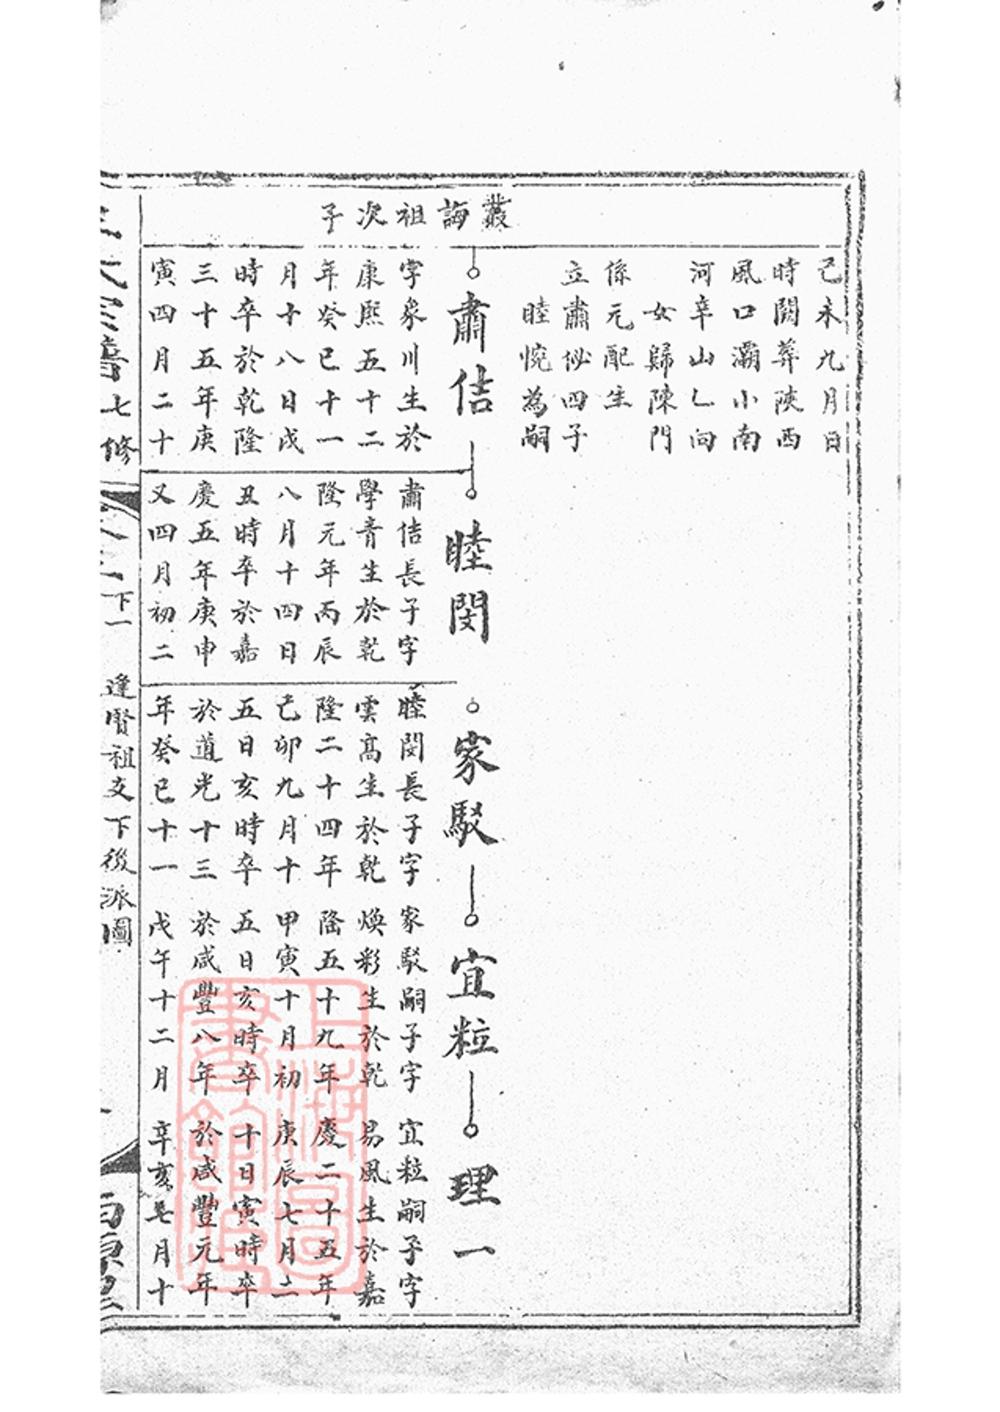 己未九月酉
時闕葬陝西
風口灞小南
河辛山乙向
女歸陳門
係元配生
立肅佖四子
睦惋為嗣
叢誨祖次子
肅佶
字象川生於
康熙五十二
年癸巳十一
月十八日戌
時卒於乾隆
三十五年庚
寅四月二十
睦閔
肅佶長子字
學青生於乾
隆元年丙辰
八月十四日
丑時卒於嘉
慶五年庚申
又四月初二
家駁
睦閔長子字
雲高生於乾
隆二十四年
己卯九月十
五日亥時卒
於道光十三
年癸巳十一
宜粒
家駁嗣子字
煥彩生於乾
隆五十九年
甲寅十月初
五日亥時卒
於咸豐八年
戊午十二月
理一
宜粒嗣子字
易風生於嘉
慶二十五年
庚辰七月二
十日寅時卒
於咸豐元年
辛亥七月十
宗譜七修
下一
逢曆祖支下後派圖
上海圖書館藏